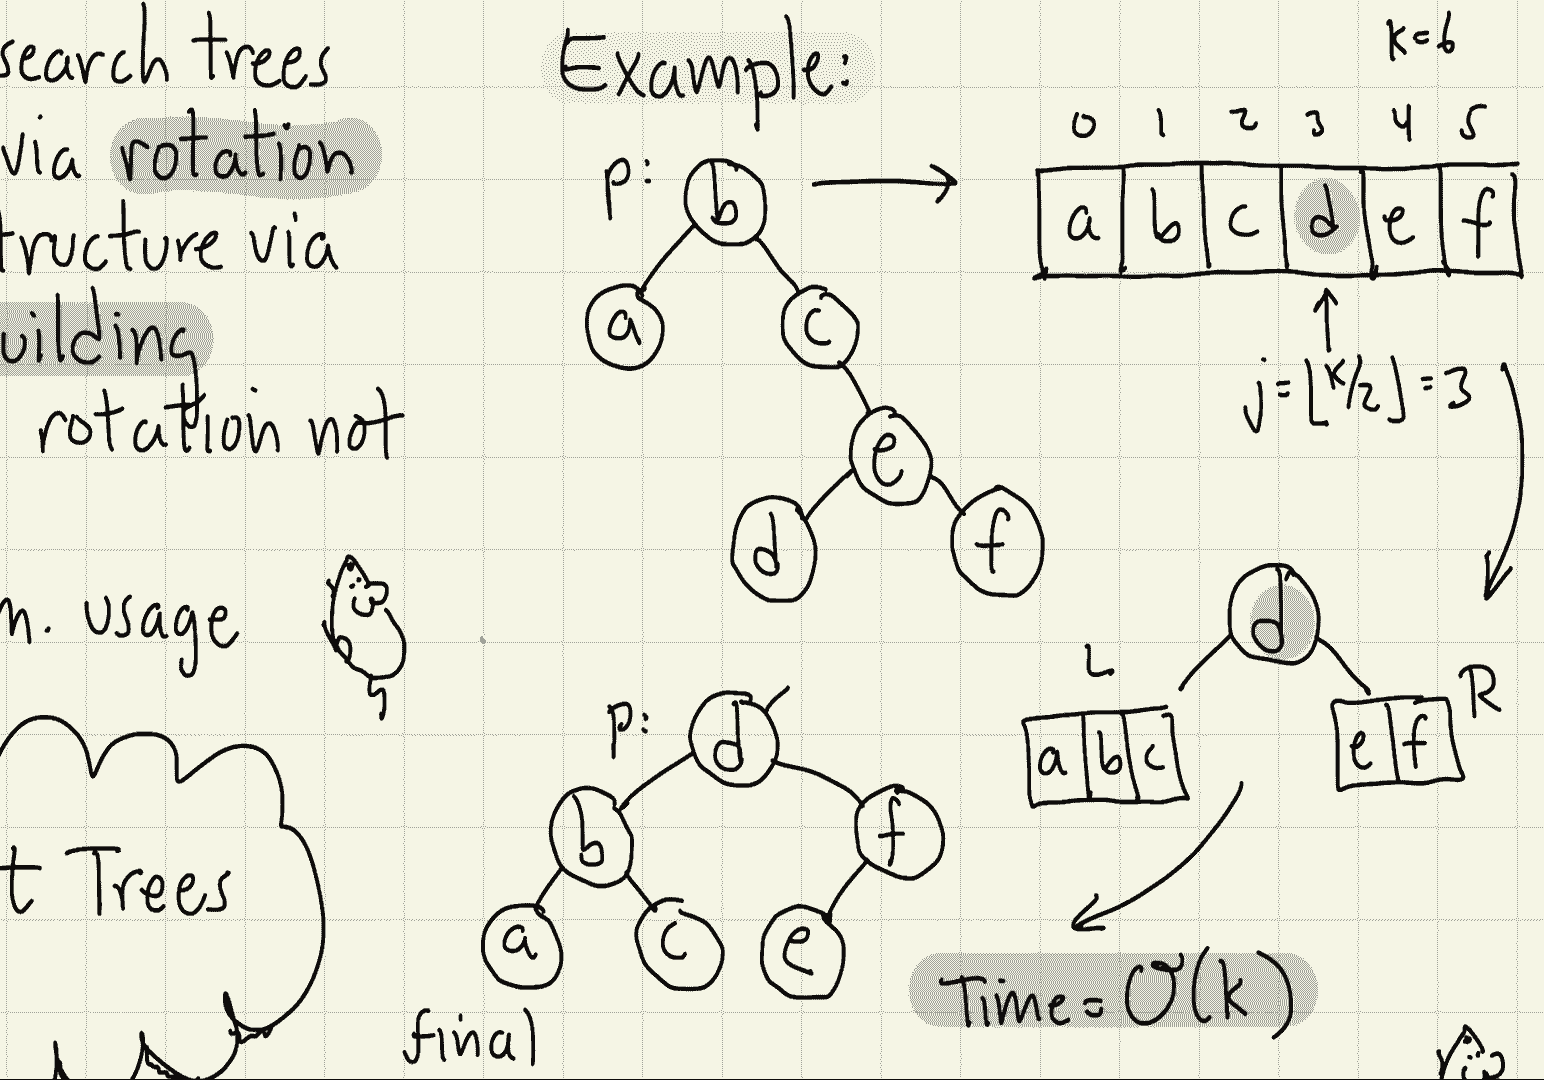 search trees
via rotation
tructure via
uilding
rotation not
m. usage
t Trees
Example:
p:
b
a c
e
d f
k=6
0 1 2 3 4 5
a b c d e f
j=⌊k/2⌋=3
d
L R
a b c e f
p: d
b f
a c e
final
Time = O(k)